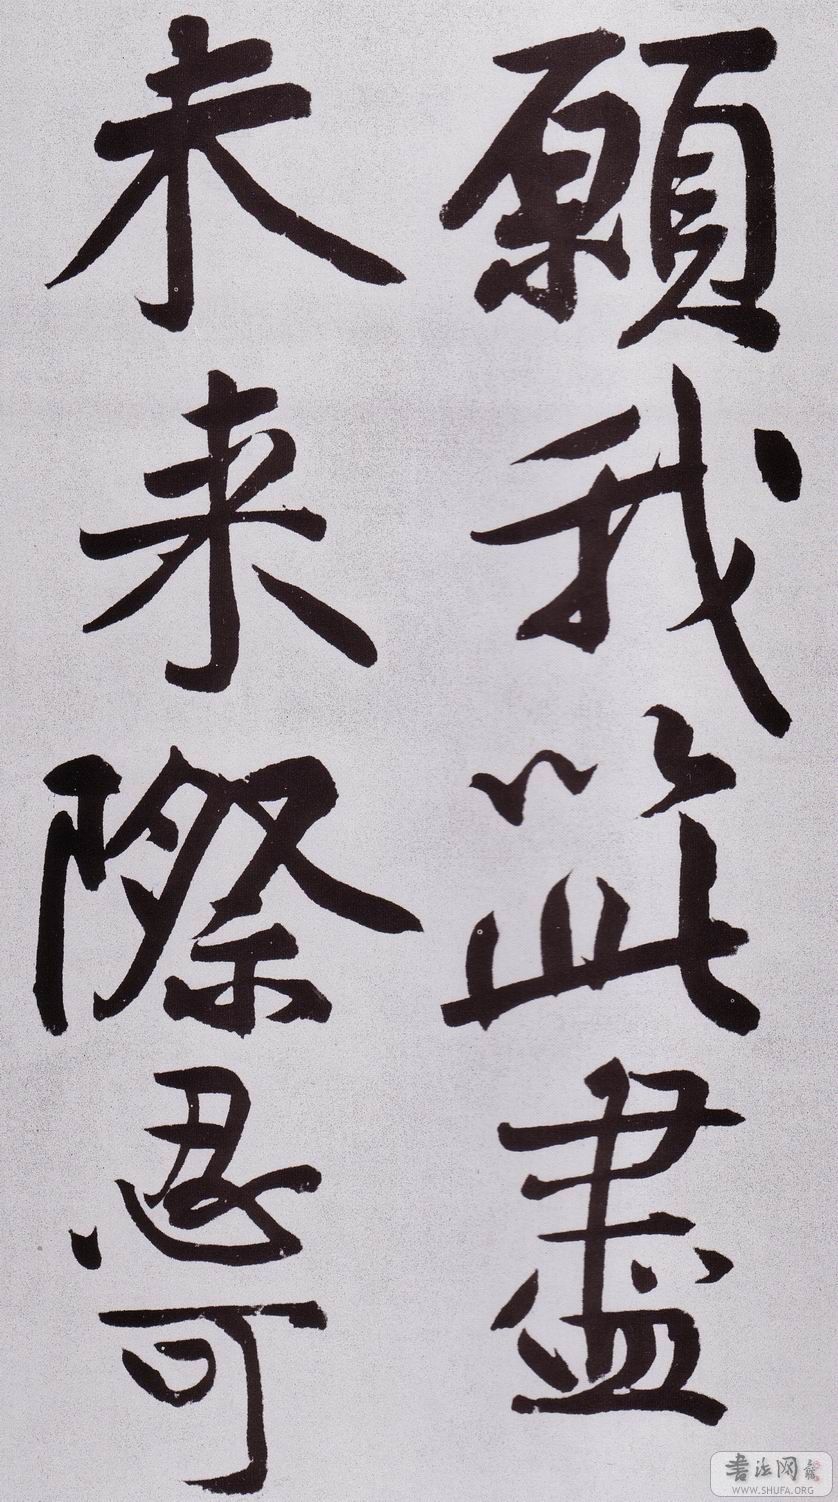 願我以此盡
未来際忍可
書法网
WWW.SHUFA.ORG